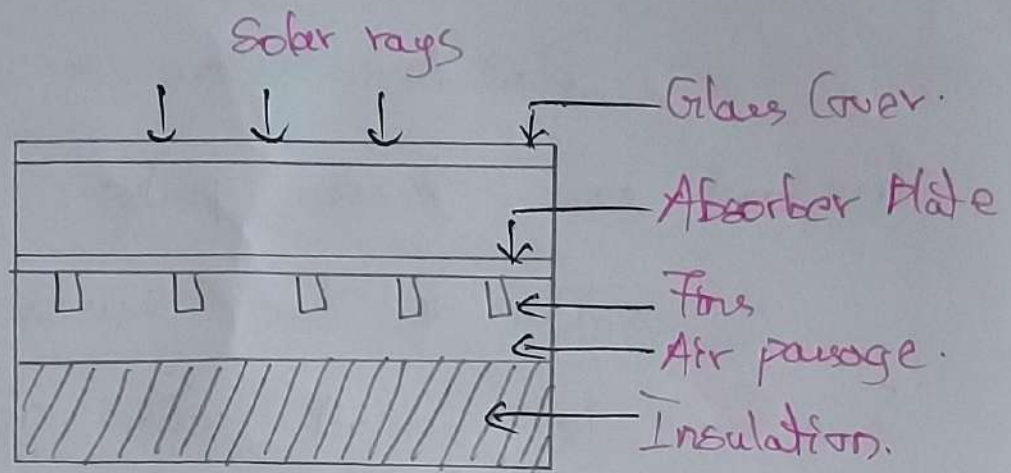 Solar rays
Glass Cover.
Absorber Plate
Fins
Air passage.
Insulation.